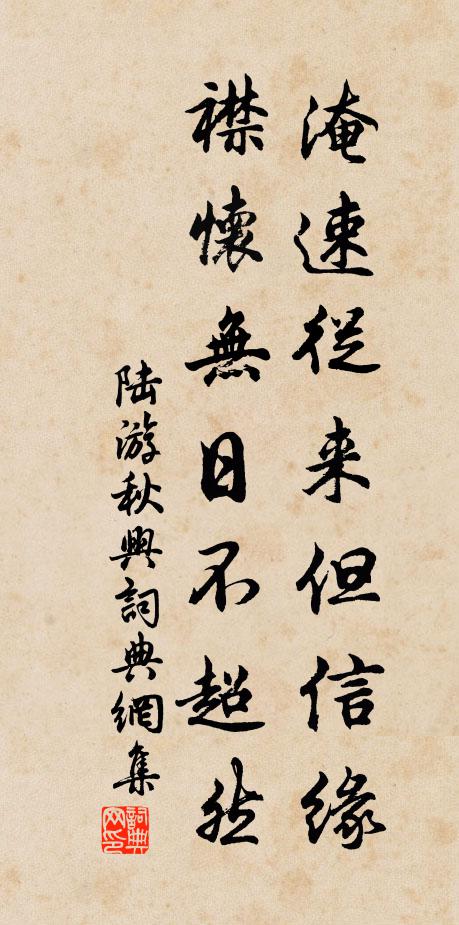 淹速從来但信緣
襟懷無日不超然
陆游秋興詞典網集
詞典网印